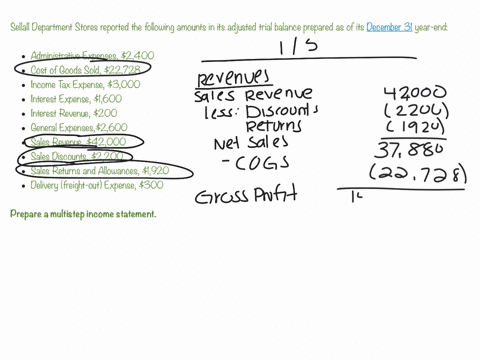 Sellall Department Stores reported the following amounts in its adjusted trial balance prepared as of its December 31 year-end:
• Administrative Expenses, $2,400
• Cost of Goods Sold, $22,728
• Income Tax Expense, $3,000
• Interest Expense, $1,600
• Interest Revenue, $200
• General Expenses, $2,600
• Sales Revenue, $42,000
• Sales Discounts, $2,200
• Sales Returns and Allowances, $1,920
• Delivery (freight-out) Expense, $300
Prepare a multistep income statement.
I/S
Revenues
Sales Revenue 42,000
less: Discounts (2200)
Returns (1920)
Net Sales 37,880
- COGS (22,728)
Gross Profit 1